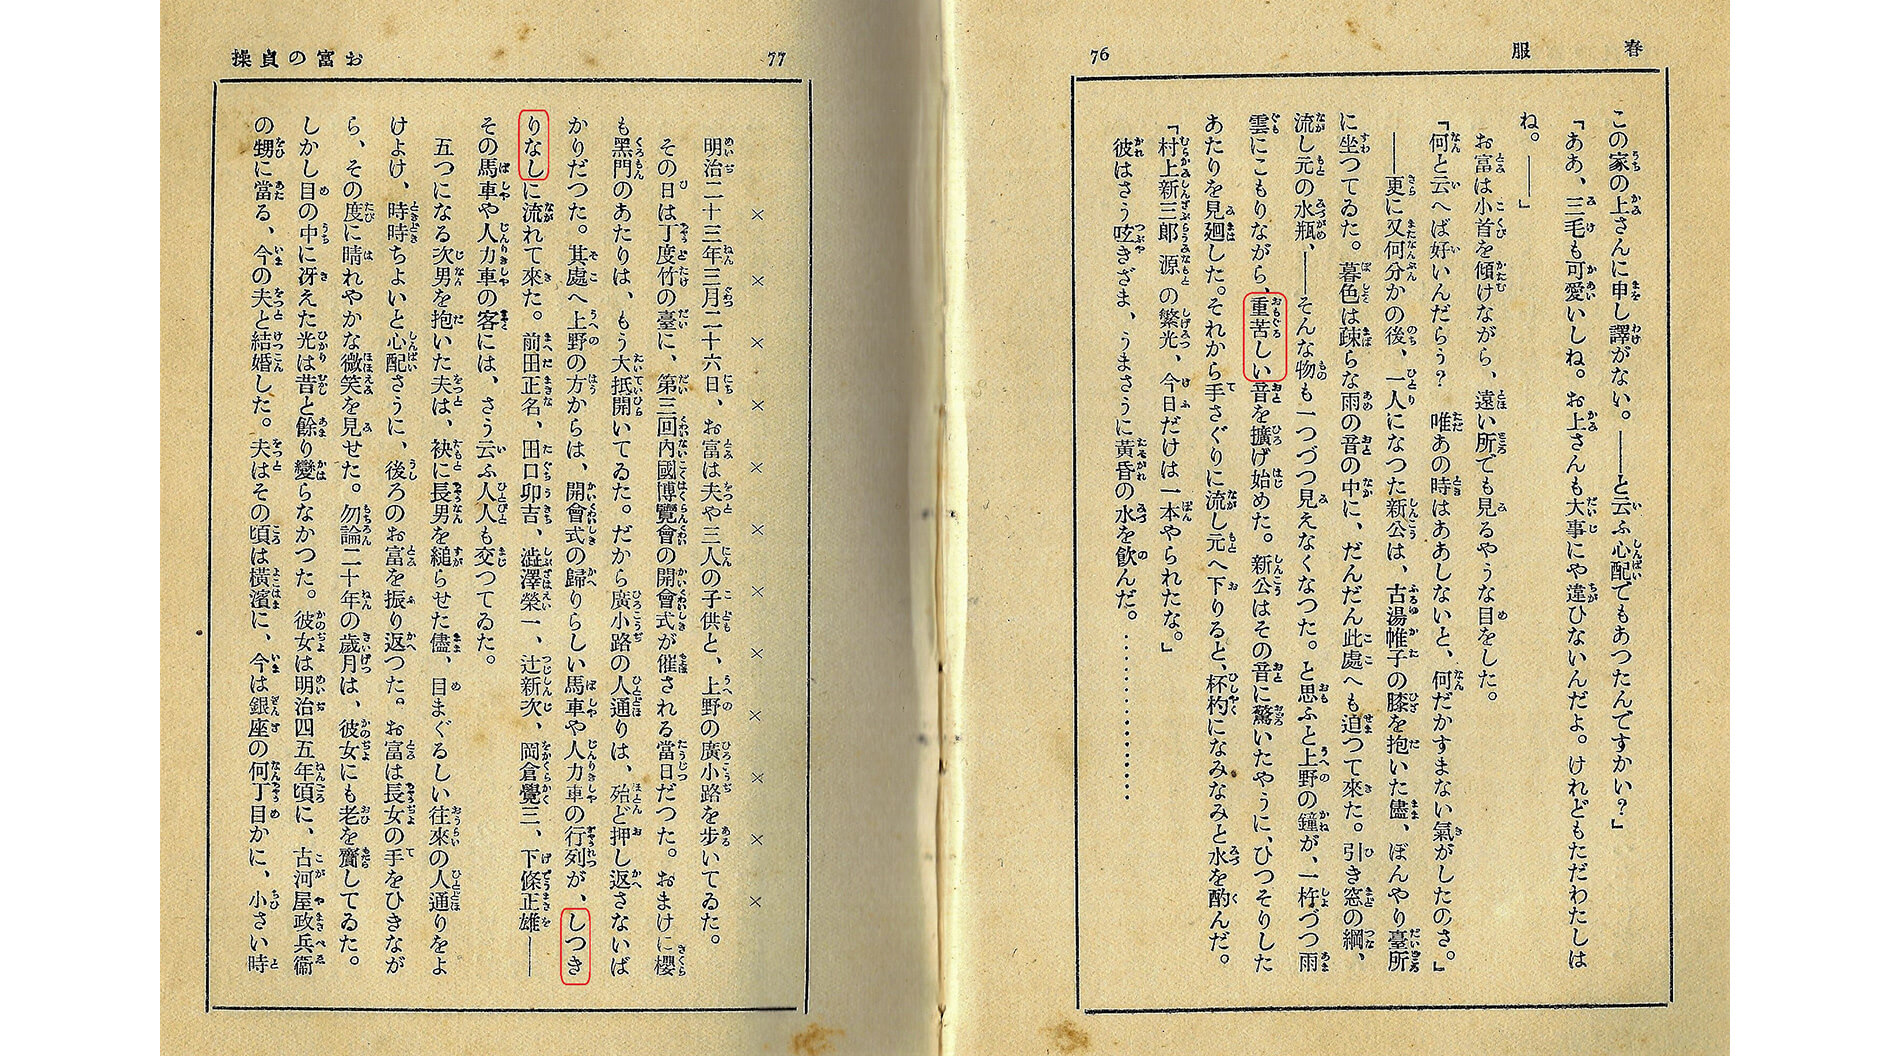 春服
76
この家の上さんに申し譯がない。――と云ふ心配でもあつたんですかい？」
「ああ、三毛も可愛いしね。お上さんも大事にや違ひないんだよ。けれどもただわたしは
ね。――」
お富は小首を傾けながら、遠い所でも見るやうな目をした。
「何と云へば好いんだらう？　唯あの時はああしないと、何だかすまない氣がしたのさ。」
――更に又何分かの後、一人になつた新公は、古湯帷子の膝を抱いた儘、ぼんやり臺所
に坐つてゐた。暮色は疎らな雨の音の中に、だんだん此處へも迫つて來た。引き窓の綱、
流し元の水瓶、――そんな物も一つづつ見えなくなつた。と思ふと上野の鐘が、一杵づつ雨
雲にこもりながら、重苦しい音を擴げ始めた。新公はその音に驚いたやうに、ひつそりした
あたりを見廻した。それから手さぐりに流し元へ下りると、柄杓になみなみと水を酌んだ。
「村上新三郎源の繁光、今日だけは一本やられたな。」
彼はさう呟きざま、うまさうに黃昏の水を飮んだ。………………
お富の貞操
77
× × × × × × × × × × × ×
明治二十三年三月二十六日、お富は夫や三人の子供と、上野の廣小路を歩いてゐた。
その日は丁度竹の臺に、第三回內國博覽會の開會式が催される當日だつた。おまけに櫻
も黑門のあたりは、もう大抵開いてゐた。だから廣小路の人通りは、殆ど押し返さないば
かりだつた。其處へ上野の方からは、開會式の歸りらしい馬車や人力車の行列が、しつき
りなしに流れて來た。前田正名、田口卯吉、澁澤榮一、辻新次、岡倉覺三、下條正雄――
その馬車や人力車の客には、さう云ふ人人も交つてゐた。
五つになる次男を抱いた夫は、袂に長男を縋らせた儘、目まぐるしい往來の人通りをよ
けよけ、時時ちよいと心配さうに、後ろのお富を振り返つた。お富は長女の手をひきなが
ら、その度に晴れやかな微笑を見せた。勿論二十年の歲月は、彼女にも老を齎してゐた。
しかし目の中に冴えた光は昔と餘り變らなかつた。彼女は明治四五年頃に、古河屋政兵衞
の甥に當る、今の夫と結婚した。夫はその頃は橫濱に、今は銀座の何丁目かに、小さい時